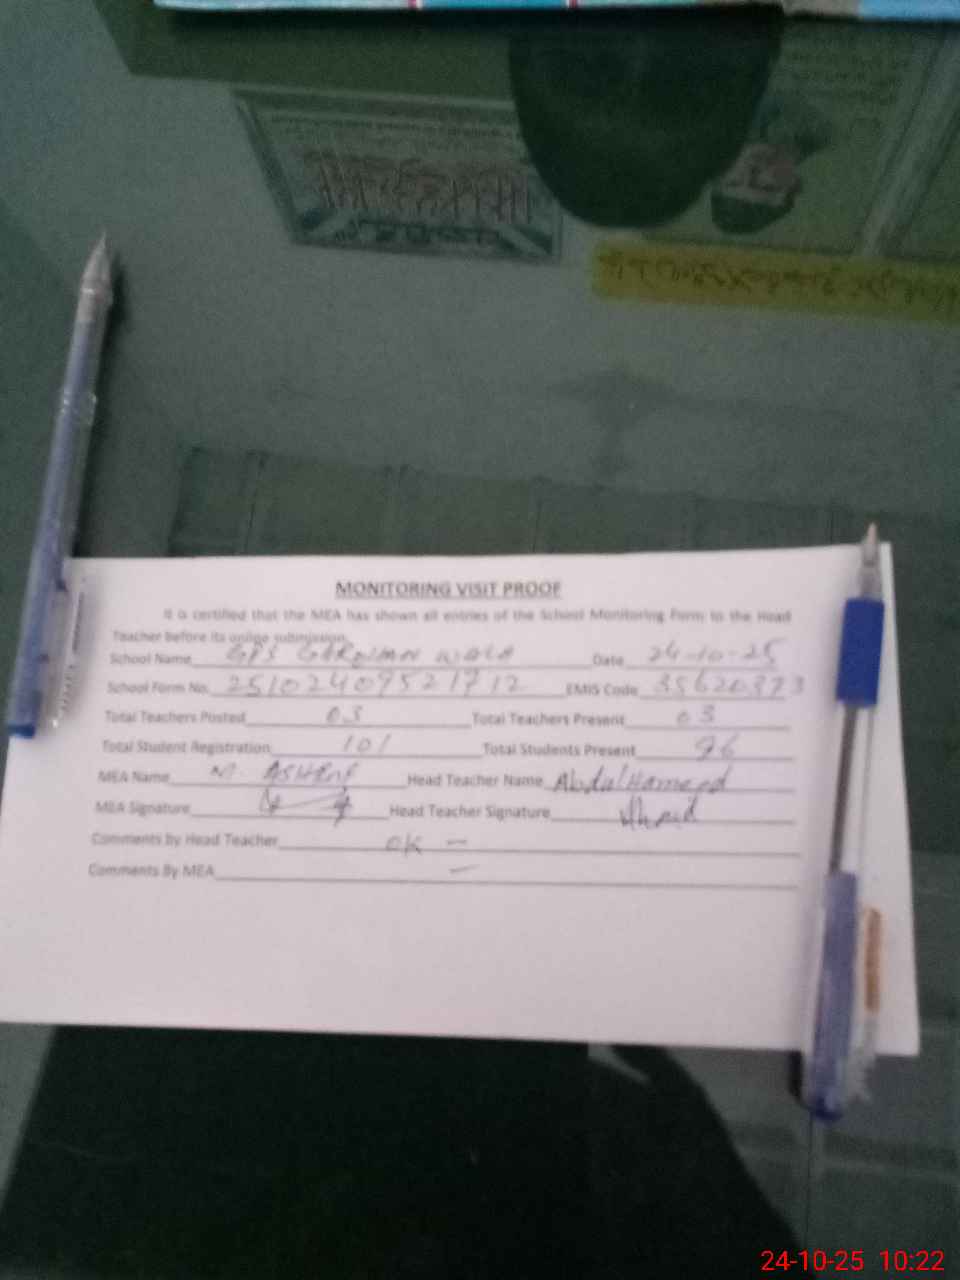 MONITORING VISIT PROOF
It is certified that the MEA has shown all entries of the School Monitoring Form to the Head
Teacher before its online submission.
School Name GPS WALA Date 24-10-25
School Form No. 25102409521712 EMIS Code 35620373
Total Teachers Posted 03 Total Teachers Present 03
Total Student Registration 101 Total Students Present 96
MEA Name M. Head Teacher Name Abdul Hameed
MEA Signature Head Teacher Signature
Comments by Head Teacher OK -
Comments By MEA -
24-10-25 10:22